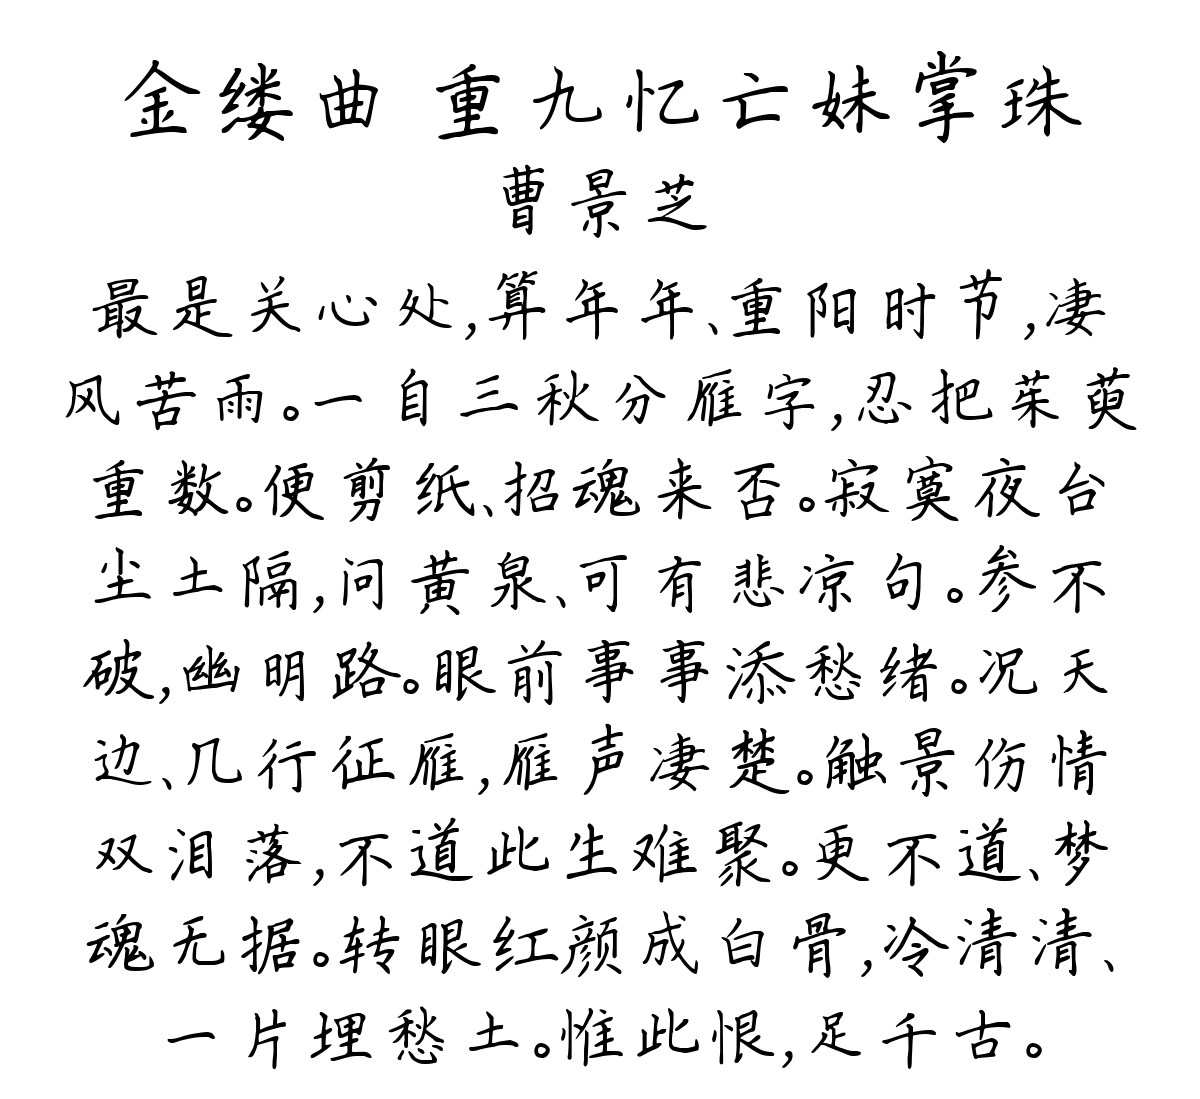 金缕曲 重九忆亡妹掌珠
曹景芝
最是关心处,算年年、重阳时节,凄
风苦雨。一自三秋分雁字,忍把茱萸
重数。便剪纸、招魂来否。寂寞夜台
尘土隔,问黄泉、可有悲凉句。参不
破,幽明路。眼前事事添愁绪。况天
边、几行征雁,雁声凄楚。触景伤情
双泪落,不道此生难聚。更不道、梦
魂无据。转眼红颜成白骨,冷清清、
一片埋愁土。惟此恨,足千古。